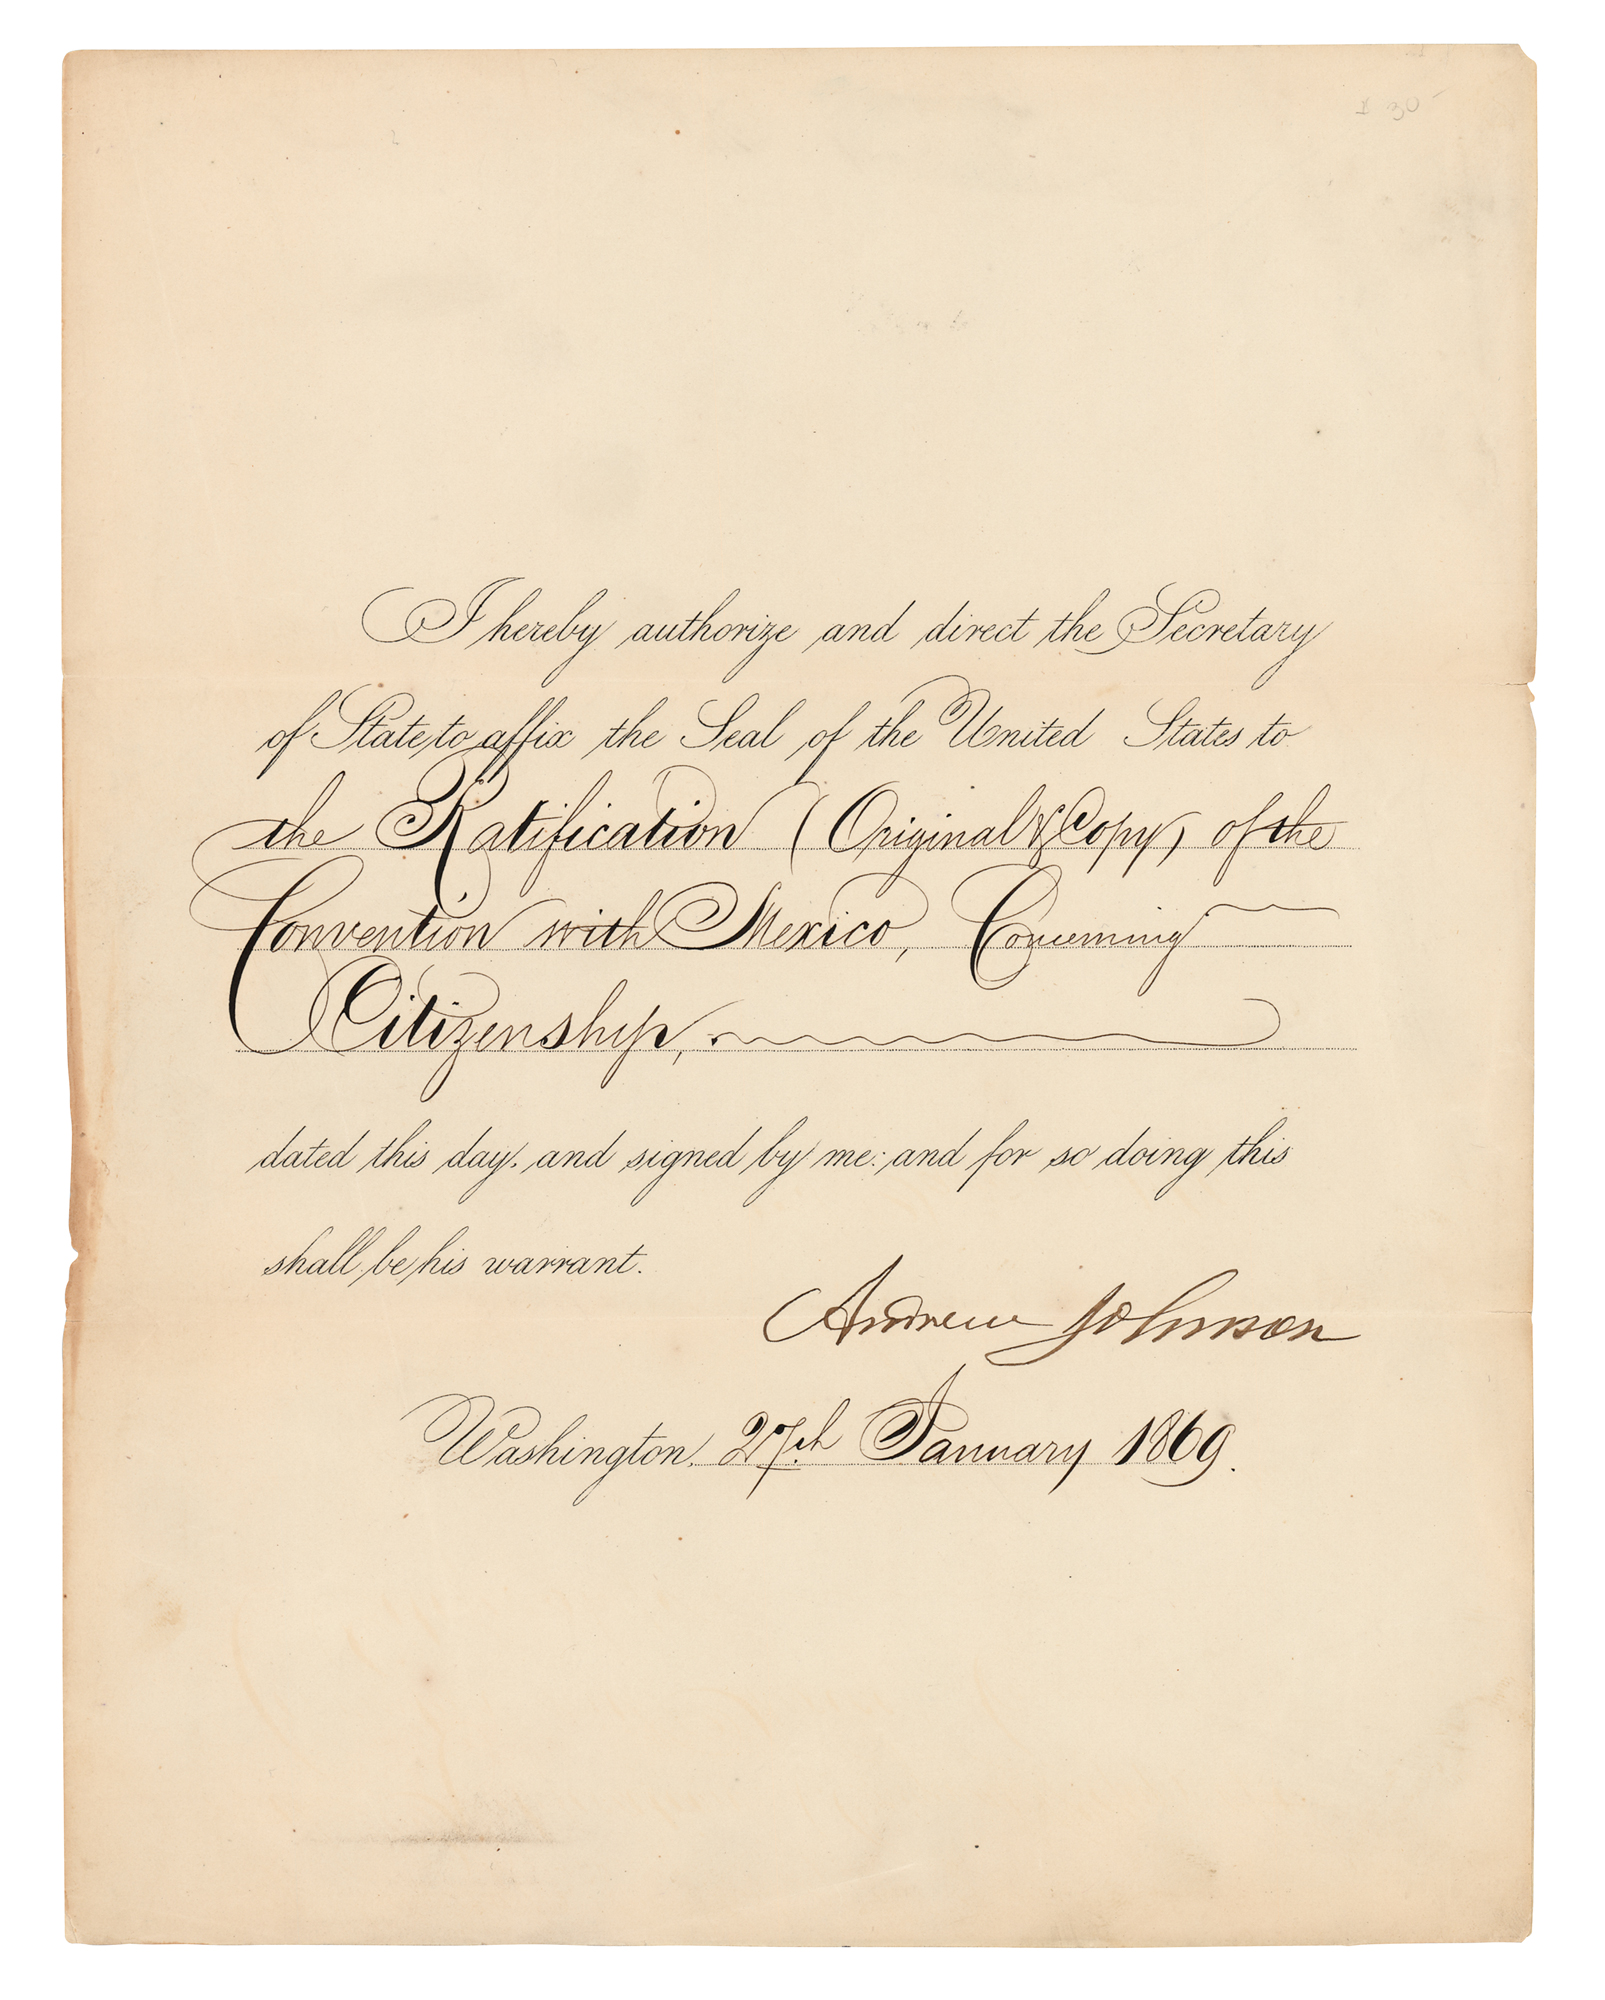 I hereby authorize and direct the Secretary
of State to affix the Seal of the United States to
the Ratification (Original & Copy) of the
Convention with Mexico, Concerning
Citizenship,
dated this day, and signed by me: and for so doing this
shall be his warrant.
Andrew Johnson
Washington, 27th January 1869.